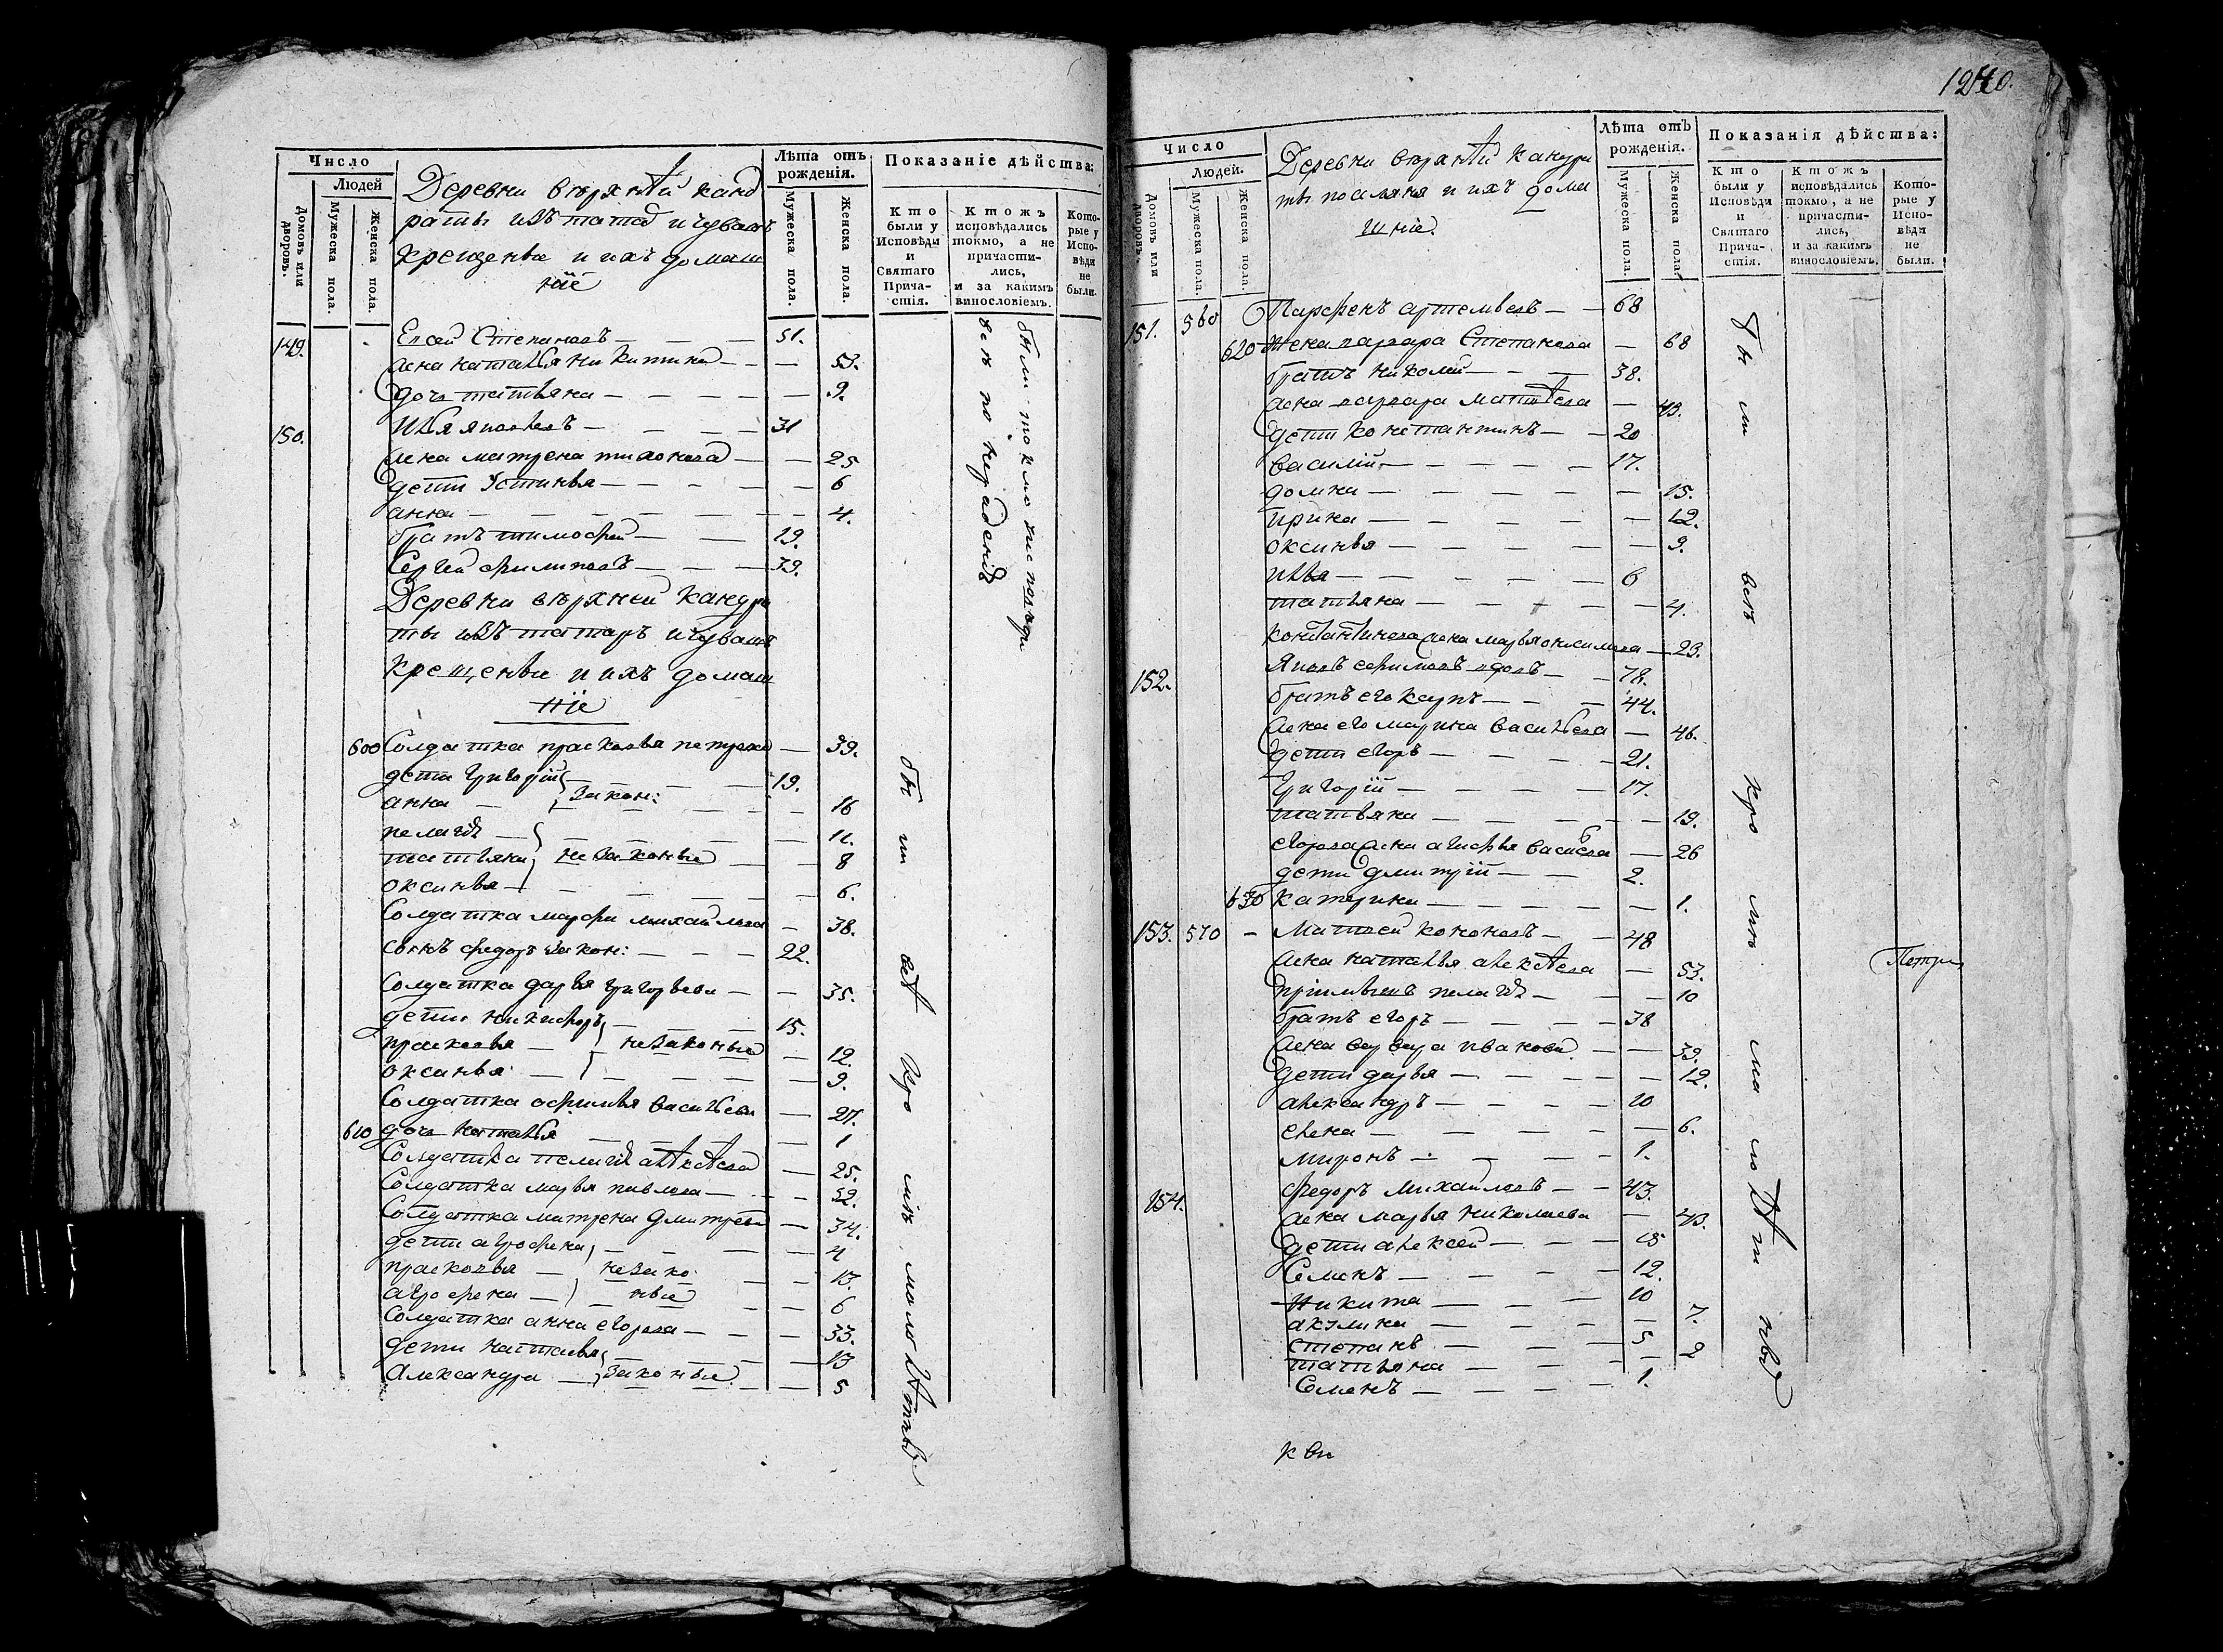 Число
Людей
Домовъ или дворовъ.
Мужеска пола.
Женска пола.
Деревни вѣрхнѣй канд
раты изъ татаръ и чувашъ
крещеные и ихъ домаш
ніе
Лѣта отъ рожденія.
Мужеска пола.
Женска пола.
Показаніе дѣйства:
Кто были у Исповѣди и Святаго Прича-стія.
Ктожъ исповѣдались токмо, а не причасти-лись, и за какимъ винословіемъ.
Кото-рые у Испо-вѣди не были.
149. Елсей Степановъ — — — 51.
жена наталья никитина — — — 53.
дочь татьяна — — — — 9.
150. Илья яковлевъ — — — 31
жена матрена тихонова — — 25
дети Устинья — — — — 6
анна — — — — — 4.
братъ тимофей — — 19.
Сергей филиповъ — — — 39.
были токмо на исповѣди
всѣ по нерадению
Деревни верхней Кандра
ты изъ татаръ и чувашъ
крещеные и ихъ домаш
ніе
600 Солдатка прасковья петрова — 39.
дети григорій — — 19.
анна — закон: — — 16
пелагѣя — — — 11.
татьяна незаконные — — 8
оксинья — — — 6.
Солдатка марфа михайлова — 38.
сынъ федоръ закон: — — — 22.
Солдатка дарья григорьева — — 35.
дети никифоръ — — 15.
прасковья — незаконные — 12.
оксинья — — — — 9.
Солдатка афимья васильева — 27.
610 дочь наталья — — — 1
Солдатка пелагѣя алексѣева — 25.
Солдатка марья павлова — — — 52.
Солдатка матрена дмитрева — 34.
дети агрофена — — — 4
прасковья — незако — 13.
агрофена — ные — — 6
Солдатка анна егорова — — — 33.
дети наталья — — — 13
Александра — законные — — 5
были всѣ кромѣ малолѣтныхъ
1240.
Число
Людей.
Домовъ или дворовъ.
Мужеска пола.
Женска пола.
Деревни верхнѣй кандра
ты поселяня и ихъ дома
шніе
Лѣта отъ рожденія.
Мужеска пола.
Женска пола.
Показанія дѣйства:
Кто были у Исповѣди и Святаго Прича-стія.
Ктожъ исповѣдались токмо, а не причасти-лись, и за какимъ винословіемъ.
Кото-рые у Испо-вѣди не были.
151. 560 Парфенъ артемьевъ — — 68
620 жена варвара Степанова — 68
братъ николай — — — 38.
жена варвара матвѣева — 43.
дети константинъ — — 20
василій — — — — — 17.
домна — — — — — 15.
ирина — — — — — 12.
оксинья — — — — — 9.
илья — — — — — 6
татьяна — — — — — 4.
константинова жена марья онисимова — 23.
152. Яковъ ефимовъ вдовъ — — 78.
братъ его карпъ — — — 44.
жена его марина васильева — 46.
дети егоръ — — — — 21.
григорій — — — — 17.
татьяна — — — — — 19.
егорова жена агафья васильева — 26
дети дмитрій — — 2.
630 катерина — — — — — 1.
153. 570 — Матвей кононовъ — — 48
жена наталья алексѣева — 53.
пріимышъ пелагѣя — — — 10
братъ егоръ — — — — 38
жена варвара иванова — — 39.
дети дарья — — — — — 12.
александръ — — — — 10
елена — — — — — 6.
миронъ — — — — 1.
154. федоръ михайловъ — — 43.
жена марья николаева — 43.
дети алексей — — — 15
Семенъ — — — — 12.
Никита — — — — 10
акулина — — — — — 7.
степанъ — — — 5
татьяна — — — — 2
Семенъ — — — — 1.
были всѣ кромѣ малолѣтныхъ